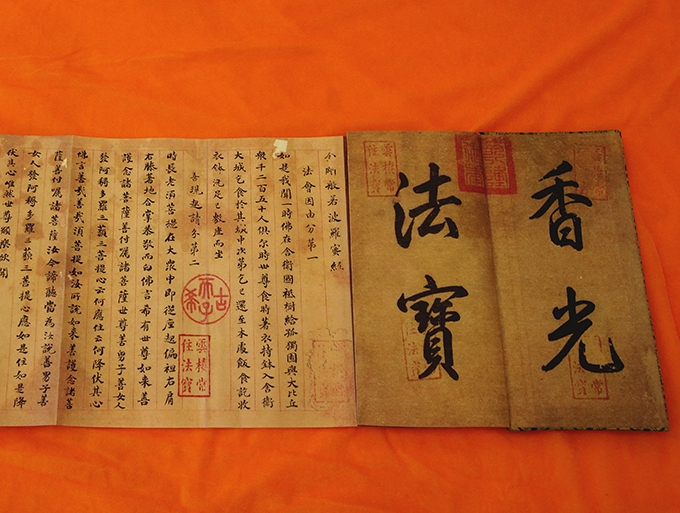 香光
法寶
金剛般若波羅蜜經
法會因由分第一
如是我聞一時佛在舍衛國祇樹給孤獨園與大比丘
衆千二百五十人俱尔時世尊食時著衣持鉢入舍衛
大城乞食於其城中次第乞已還至本處飯食訖收
衣鉢洗足已敷座而坐
善現起請分第二
時長老須菩提在大衆中即從座起偏袒右肩
右膝著地合掌恭敬而白佛言希有世尊如來善
護念諸菩薩善付囑諸菩薩世尊善男子善女人
發阿耨多羅三藐三菩提心云何應住云何降伏其心
佛言善哉善哉須菩提如汝所說如來善護念諸菩
薩善付囑諸菩薩汝今諦聽當為汝說善男子善
女人發阿耨多羅三藐三菩提心應如是住如是降
伏其心唯然世尊願樂欲聞
古希天子
雲棲常
住法寶
雲棲常
住法寶